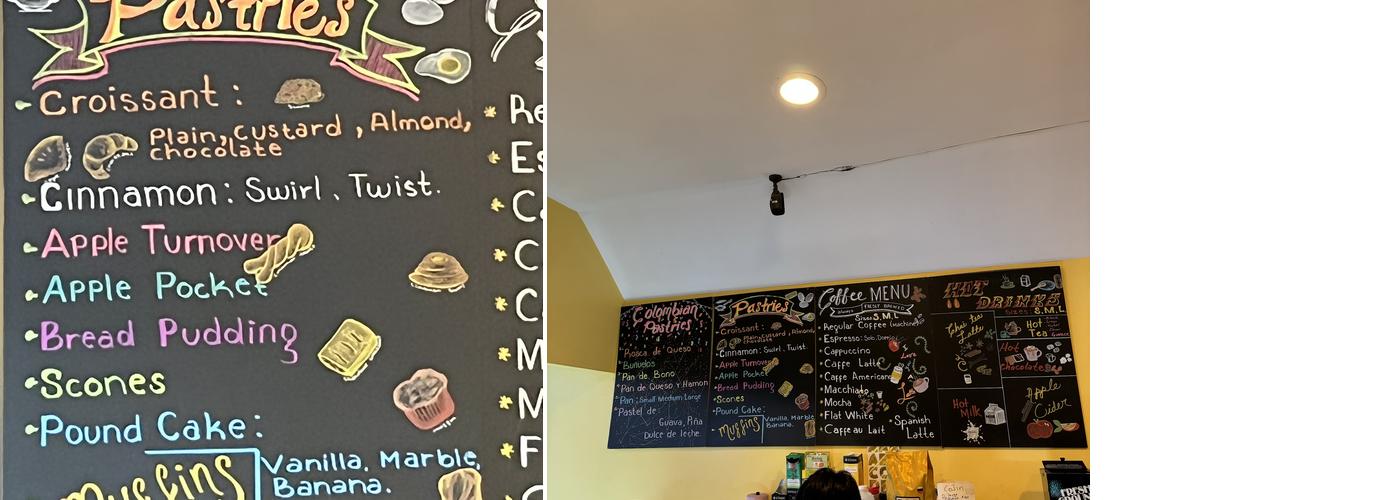 Pastries
Croissant :
Plain, Custard , Almond,
chocolate
Cinnamon : Swirl , Twist.
Apple Turnover
Apple Pocket
Bread Pudding
Scones
Pound Cake :
Muffins
Vanilla, Marble,
Banana.
Colombian
Pastries
Buñuelos
Pan de Bono
Pan de Queso y Hamon
Pan : Small Medium Large
Pastel de :
Guava, Piña
Dulce de leche
Pastries
Croissant :
Plain, Custard, Almond,
chocolate
Cinnamon : Swirl, Twist.
Apple Turnover
Apple Pocket
Bread Pudding
Scones
Pound Cake :
Muffins
Vanilla, Marble,
Banana.
Coffee MENU
always FRESH BREWED
Sizes S.M.L
Regular Coffee (Machine)
Espresso: Solo, Doppio
Cappuccino
Caffe Latte
Caffe Americano
Macchiato
Mocha
Flat White
Caffe au Lait
Spanish
Latte
I Love
HOT
DRINKS
Sizes S.M.L
Chai tea
Latte
Hot
Tea
Hot
Chocolate
Hot
Milk
Apple
Cider